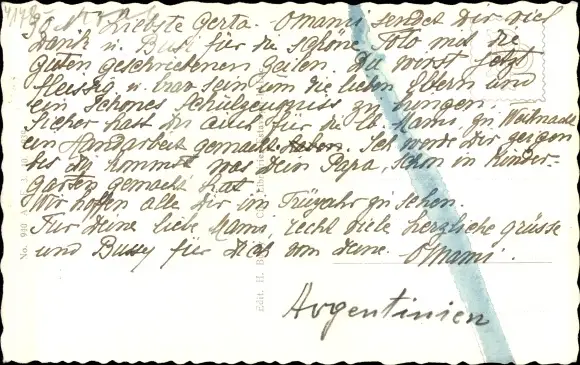 Liebste Gerta. Omami sendet Dir viel
Dank u. Bussi für die schöne Foto und die
guten geschriebenen Zeilen. Du wirst jetzt
fleissig u. brav sein um die lieben Eltern und
ein schönes Schulzeugniss zu bringen.
Sicher hast du auch für die lb. Mami zu Weihnacht
ein Handarbeit gemacht. Ich werde dir zeigen
bis du kommst was Dein Papa, schon in Kinder-
garten gemacht hat
Wir hoffen alle Dir im Früjahr zu sehen.
Für Deine liebe Mami, recht viele herzliche Grüsse
und Bussy für Dich von deine Omami.
Argentinien
No. 940
Edit. H.